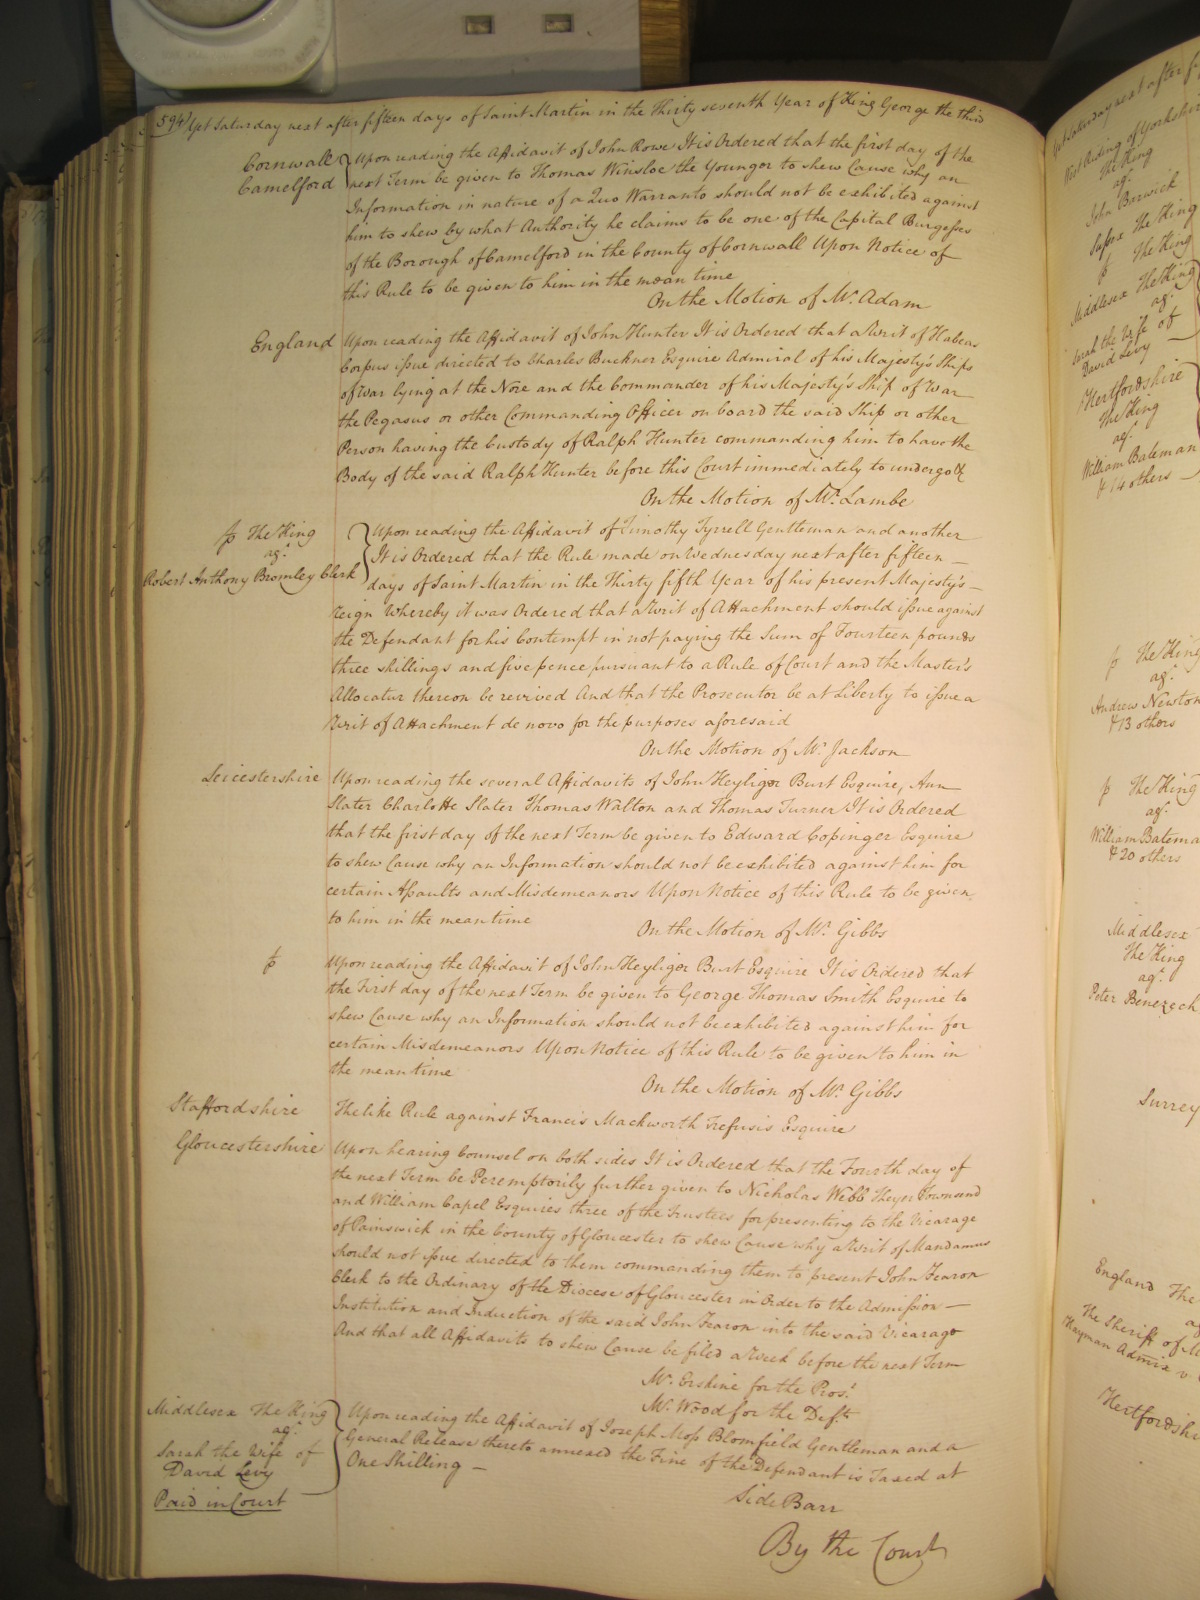 594 Yet Saturday next after fifteen days of Saint Martin in the Thirty seventh Year of King George the third
Cornwall
Camelford
Upon reading the Affidavit of John Rowe It is Ordered that the first day of the
next Term be given to Thomas Winsloe the Younger to shew Cause why an
Information in nature of a Quo Warranto should not be exhibited against
him to shew by what Authority he claims to be one of the Capital Burgesses
of the Borough of Camelford in the County of Cornwall Upon Notice of
this Rule to be given to him in the mean time
On the Motion of Mr. Adam
England
Upon reading the Affidavit of John Hunter It is Ordered that a Writ of Habeas
Corpus issue directed to Charles Buckner Esquire Admiral of his Majesty's Ships
of War lying at the Nore and the Commander of his Majesty's Ship of War
the Pegasus or other Commanding Officer on board the said Ship or other
Person having the Custody of Ralph Hunter commanding him to have the
Body of the said Ralph Hunter before this Court immediately to undergo &c
On the Motion of Mr. Lambe
The King
agt.
Robert Anthony Bromley Clerk
Upon reading the Affidavit of Timothy Tyrrell Gentleman and another
It is Ordered that the Rule made on Wednesday next after fifteen
days of Saint Martin in the Thirty fifth Year of his present Majesty's
reign Whereby it was Ordered that a Writ of Attachment should issue against
the Defendant for his Contempt in not paying the Sum of Fourteen pounds
three shillings and five pence pursuant to a Rule of Court and the Master's
Allocatur thereon be revived And that the Prosecutor be at Liberty to issue a
Writ of Attachment de novo for the purposes aforesaid
On the Motion of Mr. Jackson
Leicestershire
Upon reading the several Affidavits of John Heyliger Burt Esquire, Ann
Slater Charlotte Slater Thomas Walton and Thomas Turner It is Ordered
that the first day of the next Term be given to Edward Copinger Esquire
to shew Cause why an Information should not be exhibited against him for
certain Assaults and Misdemeanors Upon Notice of this Rule to be given
to him in the mean time
On the Motion of Mr. Gibbs
Upon reading the Affidavit of John Heyliger Burt Esquire It is Ordered that
the First day of the next Term be given to George Thomas Smith Esquire to
shew Cause why an Information should not be exhibited against him for
certain Misdemeanors Upon Notice of this Rule to be given to him in
the mean time
On the Motion of Mr. Gibbs
Staffordshire
The like Rule against Francis Mackworth Trefusis Esquire
Gloucestershire
Upon hearing Counsel on both sides It is Ordered that the Fourth day of
the next Term be Peremptorily further given to Nicholas Webb Theyer Townsend
and William Capel Esquires three of the Trustees for presenting to the Vicarage
of Painswick in the County of Gloucester to shew Cause why a Writ of Mandamus
should not issue directed to them commanding them to present John Fearon
Clerk to the Ordinary of the Diocese of Gloucester in Order to the Admission
Institution and Induction of the said John Fearon into the said Vicarage
And that all Affidavits to shew Cause be filed a Week before the next Term
Mr. Erskine for the Prosr.
Mr. Wood for the Defts
Middlesex The King
agt.
Sarah the Wife of
David Levy
Paid in Court
Upon reading the Affidavit of Joseph Moss Blomfield Gentleman and a
General Release thereto annexed the Fine of the Defendant is Taxed at
One Shilling
Side Barr
By the Court
Yet Saturday next after
West Riding of Yorkshire
The King
agt.
John Berwick
Sussex The King
The King
Middlesex The King
agt.
Sarah the Wife of
David Levy
Hertfordshire
The King
agt.
William Bateman
& 14 others
The King
agt.
Andrew Newton
& 13 others
The King
agt.
William Batema
& 20 others
Middlesex
The King
agt.
Peter Benezech
Surrey
England The
The Sheriff of
Hayman Admix v
Hertfordshi